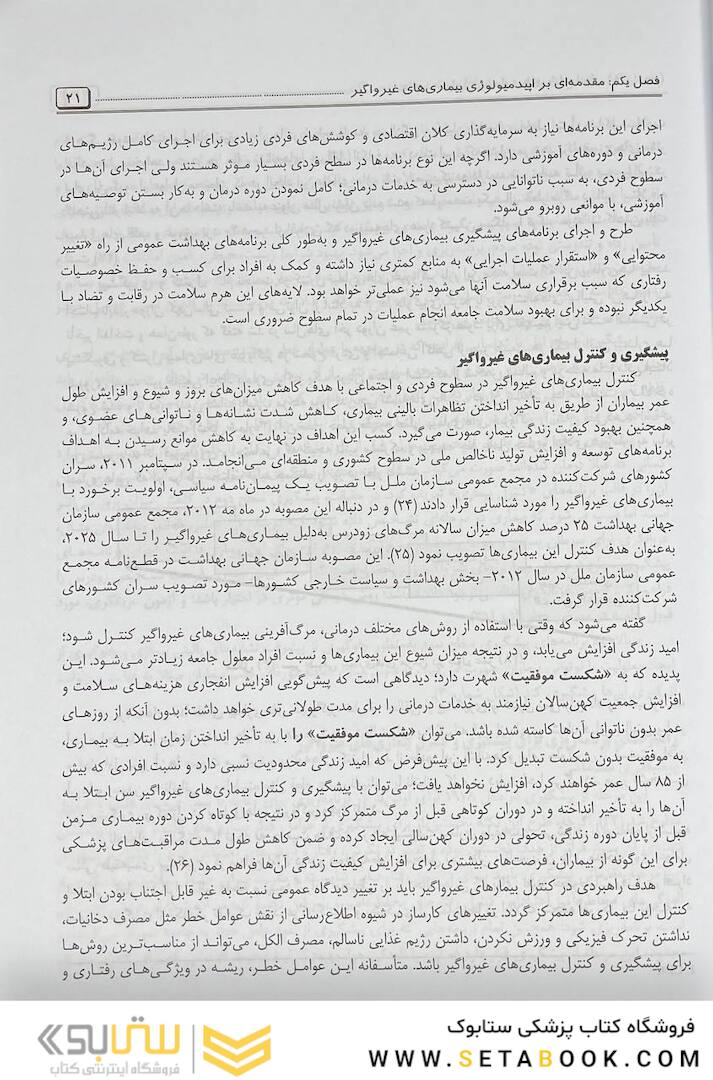 فصل یکم: مقدمه‌ای بر اپیدمیولوژی بیماری‌های غیرواگیر ۲۱
اجرای این برنامه‌ها نیاز به سرمایه‌گذاری کلان اقتصادی و کوشش‌های فردی زیادی برای اجرای کامل رژیم‌های
درمانی و دوره‌های آموزشی دارد. اگرچه این نوع برنامه‌ها در سطح فردی بسیار موثر هستند ولی اجرای آن‌ها در
سطوح فردی، به سبب ناتوانایی در دسترسی به خدمات درمانی؛ کامل نمودن دوره درمان و به‌کار بستن توصیه‌های
آموزشی، با موانعی روبرو می‌شود.
طرح و اجرای برنامه‌های پیشگیری بیماری‌های غیرواگیر و به‌طور کلی برنامه‌های بهداشت عمومی از راه «تغییر
محتوایی» و «استقرار عملیات اجرایی» به منابع کمتری نیاز داشته و کمک به افراد برای کسب و حفـظ خصوصیات
رفتاری که سبب برقراری سلامت آنها می‌شود نیز عملی‌تر خواهد بود. لایه‌های این هرم سلامت در رقابت و تضاد بـا
یکدیگر نبوده و برای بهبود سلامت جامعه انجام عملیات در تمام سطوح ضروری است.
پیشگیری و کنترل بیماری‌های غیرواگیر
کنترل بیماری‌های غیرواگیر در سطوح فردی و اجتماعی با هدف کاهش میزان‌های بروز و شیوع و افزایش طول
عمر بیماران از طریق به تأخیر انداختن تظاهرات بالینی بیماری، کـاهش شـدت نشـانه‌هـا و نـاتوانی‌هـای عضـوی، و
همچنین بهبود کیفیت زندگی بیمار، صورت می‌گیرد. کسب این اهداف در نهایت به کاهش موانع رسیدن بـه اهـداف
برنامه‌های توسعه و افزایش تولید ناخالص ملی در سطوح کشوری و منطقه‌ای مـی‌انجامـد. در سـپتامبر ۲۰۱۱، سـران
کشورهای شرکت‌کننده در مجمع عمومی سازمان ملـل بـا تصویب یـک پیمـان‌نامـه سیاسی، اولویت برخورد بـا
بیماری‌های غیرواگیر را مورد شناسایی قرار دادند (۲۴) و در دنباله این مصوبه در ماه مه ۲۰۱۲، مجمع عمومی سازمان
جهانی بهداشت ۲۵ درصد کاهش میزان سالانه مرگ‌های زودرس به‌دلیل بیماری‌های غیرواگیـر را تـا سـال ۲۰۲۵،
به‌عنوان هدف کنترل این بیماری‌ها تصویب نمود (۲۵). این مصوبه سازمان جهـانی بهداشـت در قطـع‌نامـه مجمـع
عمومی سازمان ملل در سال ۲۰۱۲- بخش بهداشت و سیاست خارجی کشـورها- مـورد تصویب سـران کشـورهای
شرکت‌کننده قرار گرفت.
گفته می‌شود که وقتی با استفاده از روش‌های مختلف درمانی، مرگ‌آفرینی بیماری‌های غیرواگیر کنتـرل شـود؛
امید زندگی افزایش می‌یابد، و در نتیجه میزان شیوع این بیماری‌ها و نسبت افراد معلول جامعه زیـادتر مـی‌شـود. ایـن
پدیده که به «شکست موفقیت» شهرت دارد؛ دیدگاهی است که پیش‌گویی افزایش انفجاری هزینه‌های سـلامت و
افزایش جمعیت کهن‌سالان نیازمند به خدمات درمانی را برای مدت طولانی‌تری خواهد داشت؛ بدون آنکه از روزهـای
عمر بدون ناتوانی آن‌ها کاسته شده باشد. می‌توان «شکست موفقیت» را با به تأخیر انداختن زمان ابتلا بـه بیمـاری،
به موفقیت بدون شکست تبدیل کرد. با این پیش‌فرض که امید زندگی محدودیت نسبی دارد و نسبت افرادی که بیش
از ۸۵ سال عمر خواهند کرد، افزایش نخواهد یافت؛ می‌توان با پیشگیری و کنترل بیماری‌های غیرواگیر سن ابـتلا بـه
آن‌ها را به تأخیر انداخته و در دوران کوتاهی قبل از مرگ متمرکز کرد و در نتیجه با کوتاه کردن دوره بیمـاری مـزمن
قبل از پایان دوره زندگی، تحولی در دوران کهن‌سالی ایجاد کرده و ضمن کاهش طول مدت مراقبـت‌هـای پزشـکی
برای این گونه از بیماران، فرصت‌های بیشتری برای افزایش کیفیت زندگی آن‌ها فراهم نمود (۲۶).
هدف راهبردی در کنترل بیمارهای غیرواگیر باید بر تغییر دیدگاه عمومی نسبت به غیر قابل اجتناب بودن ابتلا و
کنترل این بیماری‌ها متمرکز گردد. تغییرهای کارساز در شیوه اطلاع‌رسانی از نقش عوامل خطر مثل مصرف دخانیات،
نداشتن تحرک فیزیکی و ورزش نکردن، داشتن رژیم غذایی ناسالم، مصرف الکل، می‌تواند از مناسب‌ترین روش‌ها
برای پیشگیری و کنترل بیماری‌های غیرواگیر باشد. متأسفانه این عوامل خطر، ریشه در ویژگی‌های رفتاری و
فروشگاه کتاب پزشکی ستابوک
WWW.SETABOOK.COM
ستابوک
فروشگاه اینترنتی کتاب